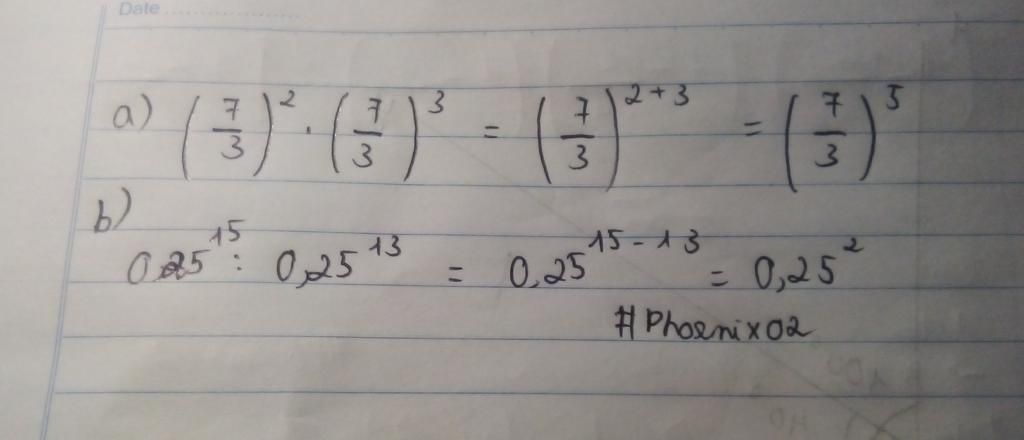 Date ........................
a) (7/3)² · (7/3)³ = (7/3)²⁺³ = (7/3)⁵
b)
0,25¹⁵ : 0,25¹³ = 0,25¹⁵⁻¹³ = 0,25²
#Phoenix02